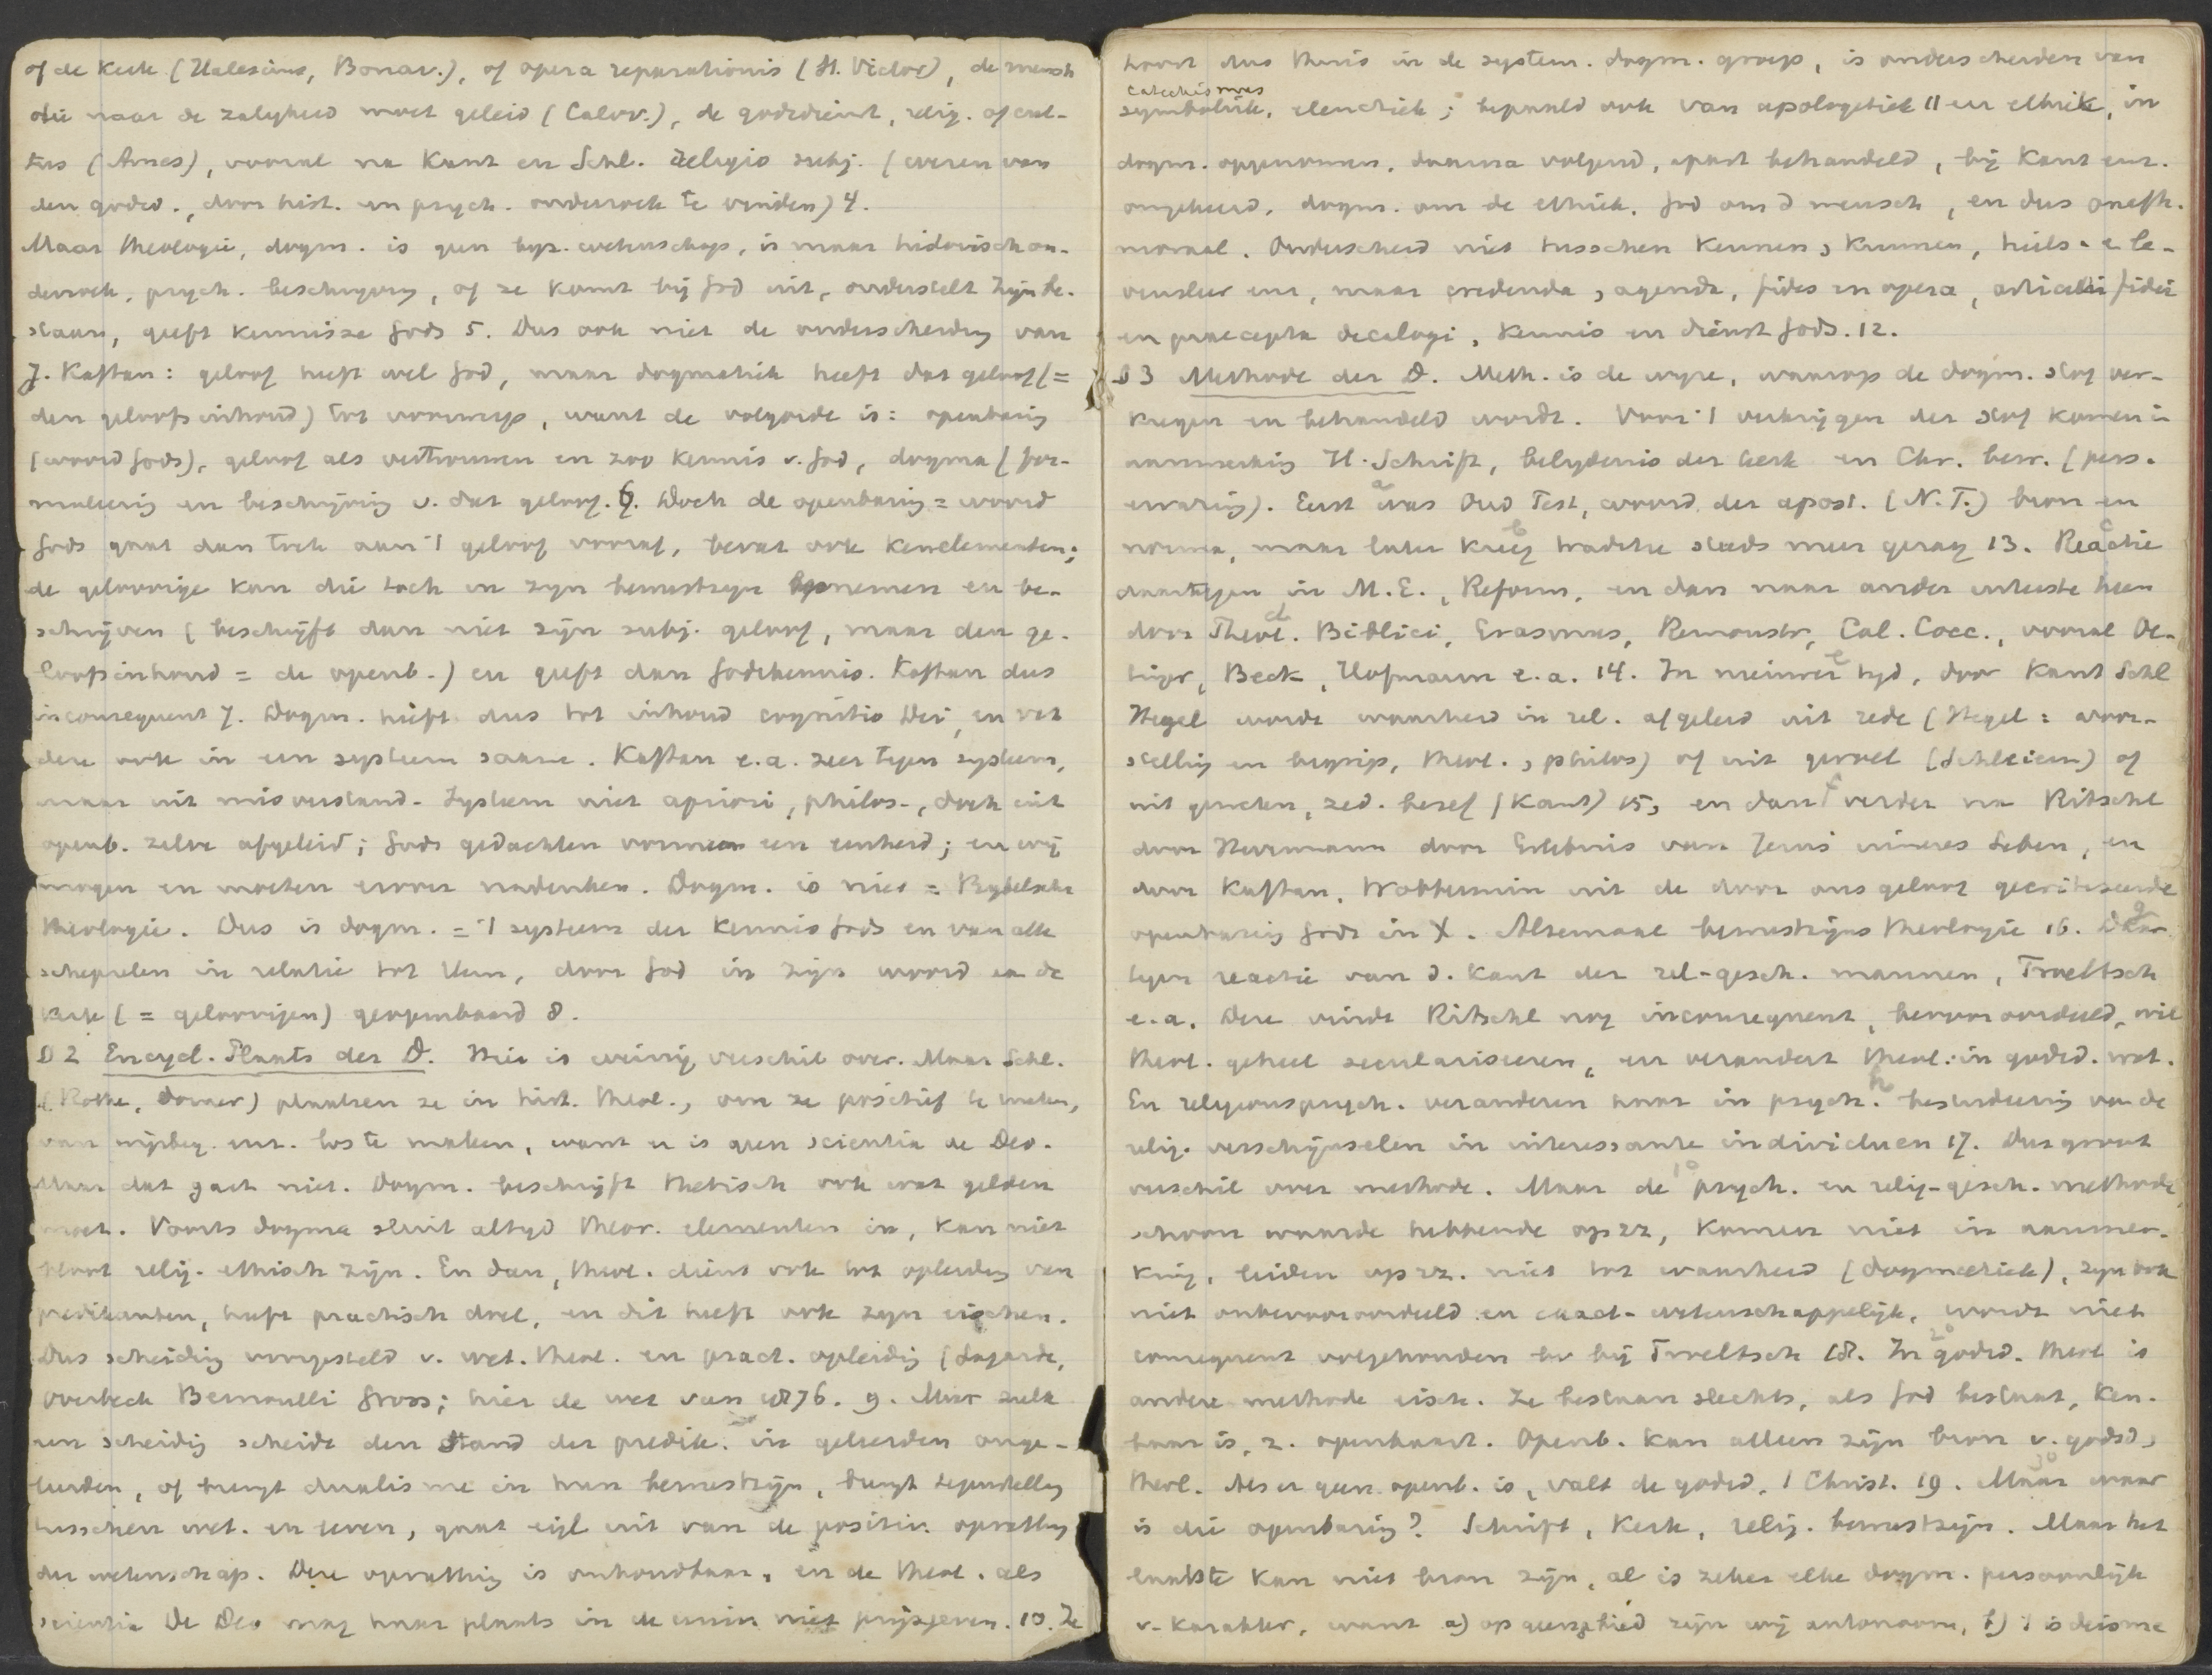 of de Kerk (Halesius, Bonav.), of opera reparationis (H. Victor), de mensch
die naar de zaligheid moet geleid (Calov.), de godsdienst, relig. of cul-
tus (Ames), vooral na Kant en Schl. religio subj. (wezen van
den godsd., door hist. en psych. onderzoek te vinden) 4.
Maar theologie, dogm. is geen byz. wetenschap, is maar historisch on-
derzoek, psych. beschrijving, of ze komt bij God uit, onderstelt Zijn be-
staan, geeft kennisse Gods 5. Dus ook niet de onderscheiding van
J. Kaftan: geloof heeft wel God, maar dogmatiek heeft dat geloof (=
den geloofsinhoud) tot voorwerp, want de volgorde is: openbaring
(woord Gods), geloof als vertrouwen en zoo kennis v. God, dogma (for-
muleering en beschrijving v. dat geloof. 6. Doch de openbaring = woord
Gods gaat dan toch aan 't geloof vooraf, bevat ook kenelementen;
de geloovige kan die toch in zijn bewustzijn opnemen en be-
schrijven (beschrijft dan niet zijn subj. geloof, maar den ge-
loofsinhoud = de openb.) en geeft dan Godskennis. Kaftan dus
inconsequent 7. Dogm. heeft dus tot inhoud cognitio Dei, en vat
deze ook in een systeem saam. Kaftan e.a. zeer tegen systeem,
maar uit misverstand. Systeem niet apriori, philos., doch uit
openb. zelve afgeleid; Gods gedachten vormen een eenheid; en wij
mogen en moeten erover nadenken. Dogm. is niet = Bijbelsche
theologie. Dus is dogm. = 't systeem der kennis Gods en van alle
schepselen in relatie tot Hem, door God in zijn woord aan de
Kerk (= geloovigen) geopenbaard 8.
§ 2 Encycl. Plaats der D. Hier is weinig verschil over. Maar Schl.
(Rothe, Dorner) plaatsen ze in hist. theol., om ze positief te maken,
van wijsbeg. enz. los te maken, want er is geen scientia de Deo.
Maar dat gaat niet. Dogm. beschrijft thetisch ook wat gelden
moet. Voorts dogma sluit altijd theor. elementen in, kan niet
bloot relig. ethisch zijn. En dan, theol. dient ook tot opleiding van
predikanten, heeft practisch doel, en dit heeft ook zijn eischen.
Dus scheiding voorgesteld v. wet. theol. en pract. opleiding (Lagarde,
Overbeck Bernoulli Gross; hier de wet van 1876. 9. Maar zulk
een scheiding scheidt den stand der predik. in geleerden onge-
leerden, of brengt dualisme in hun bewustzijn, brengt tegenstelling
tusschen wet. en leven, gaat eigl. uit van de positiv. opvatting
der wetenschap. Deze opvatting is onhoudbaar, en de theol. als
scientia De Deo mag haar plaats in de univ. niet prijsgeven. 10. Ze
hoort dus thuis in de system. dogm. groep, is onderscheiden van
catechismus
symboliek, elenctiek; bepaald ook van apologetiek 11 en ethiek, in
dogm. opgenomen, daarna volgend, apart behandeld, bij Kant enz.
omgekeerd, dogm. om de ethiek. God om d mensch, en dus onafh.
moraal. Onderscheid niet tusschen kennen, kunnen, heils- e le-
vensleer enz, maar credenda, agenda, fides en opera, articuli fidei
en praecepta decalogi, kennis en dienst Gods. 12.
§ 3 Methode der D. Meth. is de wijze, waarop de dogm. stof ver-
kregen en behandeld wordt. Voor 't verkrijgen der stof komen in
aanmerking H. Schrift, belijdenis der kerk en Chr. bew. (pers.
ervaring). Eerst a was Oud Test, woord der apost. (N.T.) bron en
norma, maar later b kreeg traditie steeds meer gezag 13. c Reactie
daartegen in M.E., Reform. en dan naar ander uiterste heen
door d Theol. Biblici, Erasmus, Remonstr, Cal. Cocc., vooral Oe-
tinger, Beck, Hofmann e.a. 14. In nieuwer e tijd, door Kant Schl
Hegel wordt waarheid in rel. afgeleid uit rede (Hegel: voor-
stelling en begrip, theol., philos) of uit gevoel (Schleierm) of
uit geweten, zed. besef (Kant) 15, en dan f verder na Ritschl
door Herrmann door Erlebnis van Jezus inneres Leben, en
door Kaftan, Wobbermin uit de door ons geloof gecritiseerde
openbaring Gods in X. Altemaal bewustzijns theologie 16. g Daar-
tegen reactie van d. kant der rel-gesch. mannen, Troeltsch
e.a. Deze vindt Ritschl nog inconsequent, bevooroordeeld, wil
theol. geheel seculariseeren, en verandert theol. in godsd. wet.
En religionspsych. h veranderen haar in psych. bestudeering van de
relig. verschijnselen in interessante individuen 17. Dus groot
verschil over methode. Maar de 1o psych. en relig-gesch. methode,
schoon waarde hebbende op zz, komen niet in aanmer-
king, leiden op zz. niet tot waarheid (dogmatiek), zijn ook
niet onbevooroordeeld en exact-wetenschappelijk, wordt niet
consequent volgehouden bv bij Troeltsch 18. In 2o godsd. theol is
andere methode eisch. Ze bestaan slechts, als God bestaat, ken-
baar is, z. openbaart. Openb. kan alleen zijn bron v. godsd,
theol. Als er geen openb. is, valt de godsd, 't Christ. 19. Maar 3o waar
is die openbaring? Schrift, Kerk, relig. bewustzijn. Maar het
laatste kan niet bron zijn, al is zeker elke dogm. persoonlijk
v. karakter, want a) op geen gebied zijn wij autonoom, b) 't is deisme